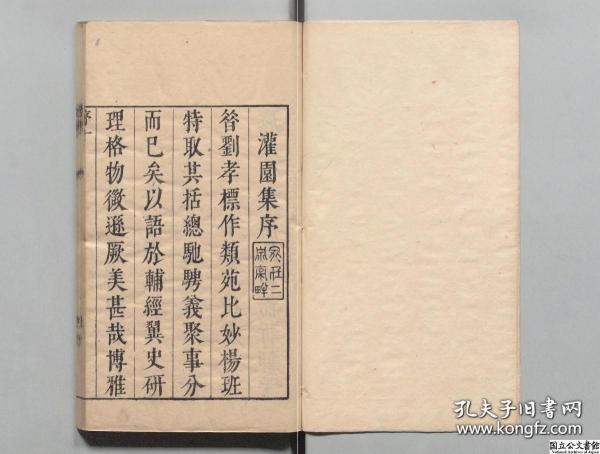 灌園集序
昝劉孝標作類苑比妙楊班
特取其括總馳騁義聚事分
而已矣以語於輔經翼史研
理格物徴遜厥美甚哉博雅
序一
孔夫子旧书网
www.kongfz.com
国立公文書館
National Archives of Japan